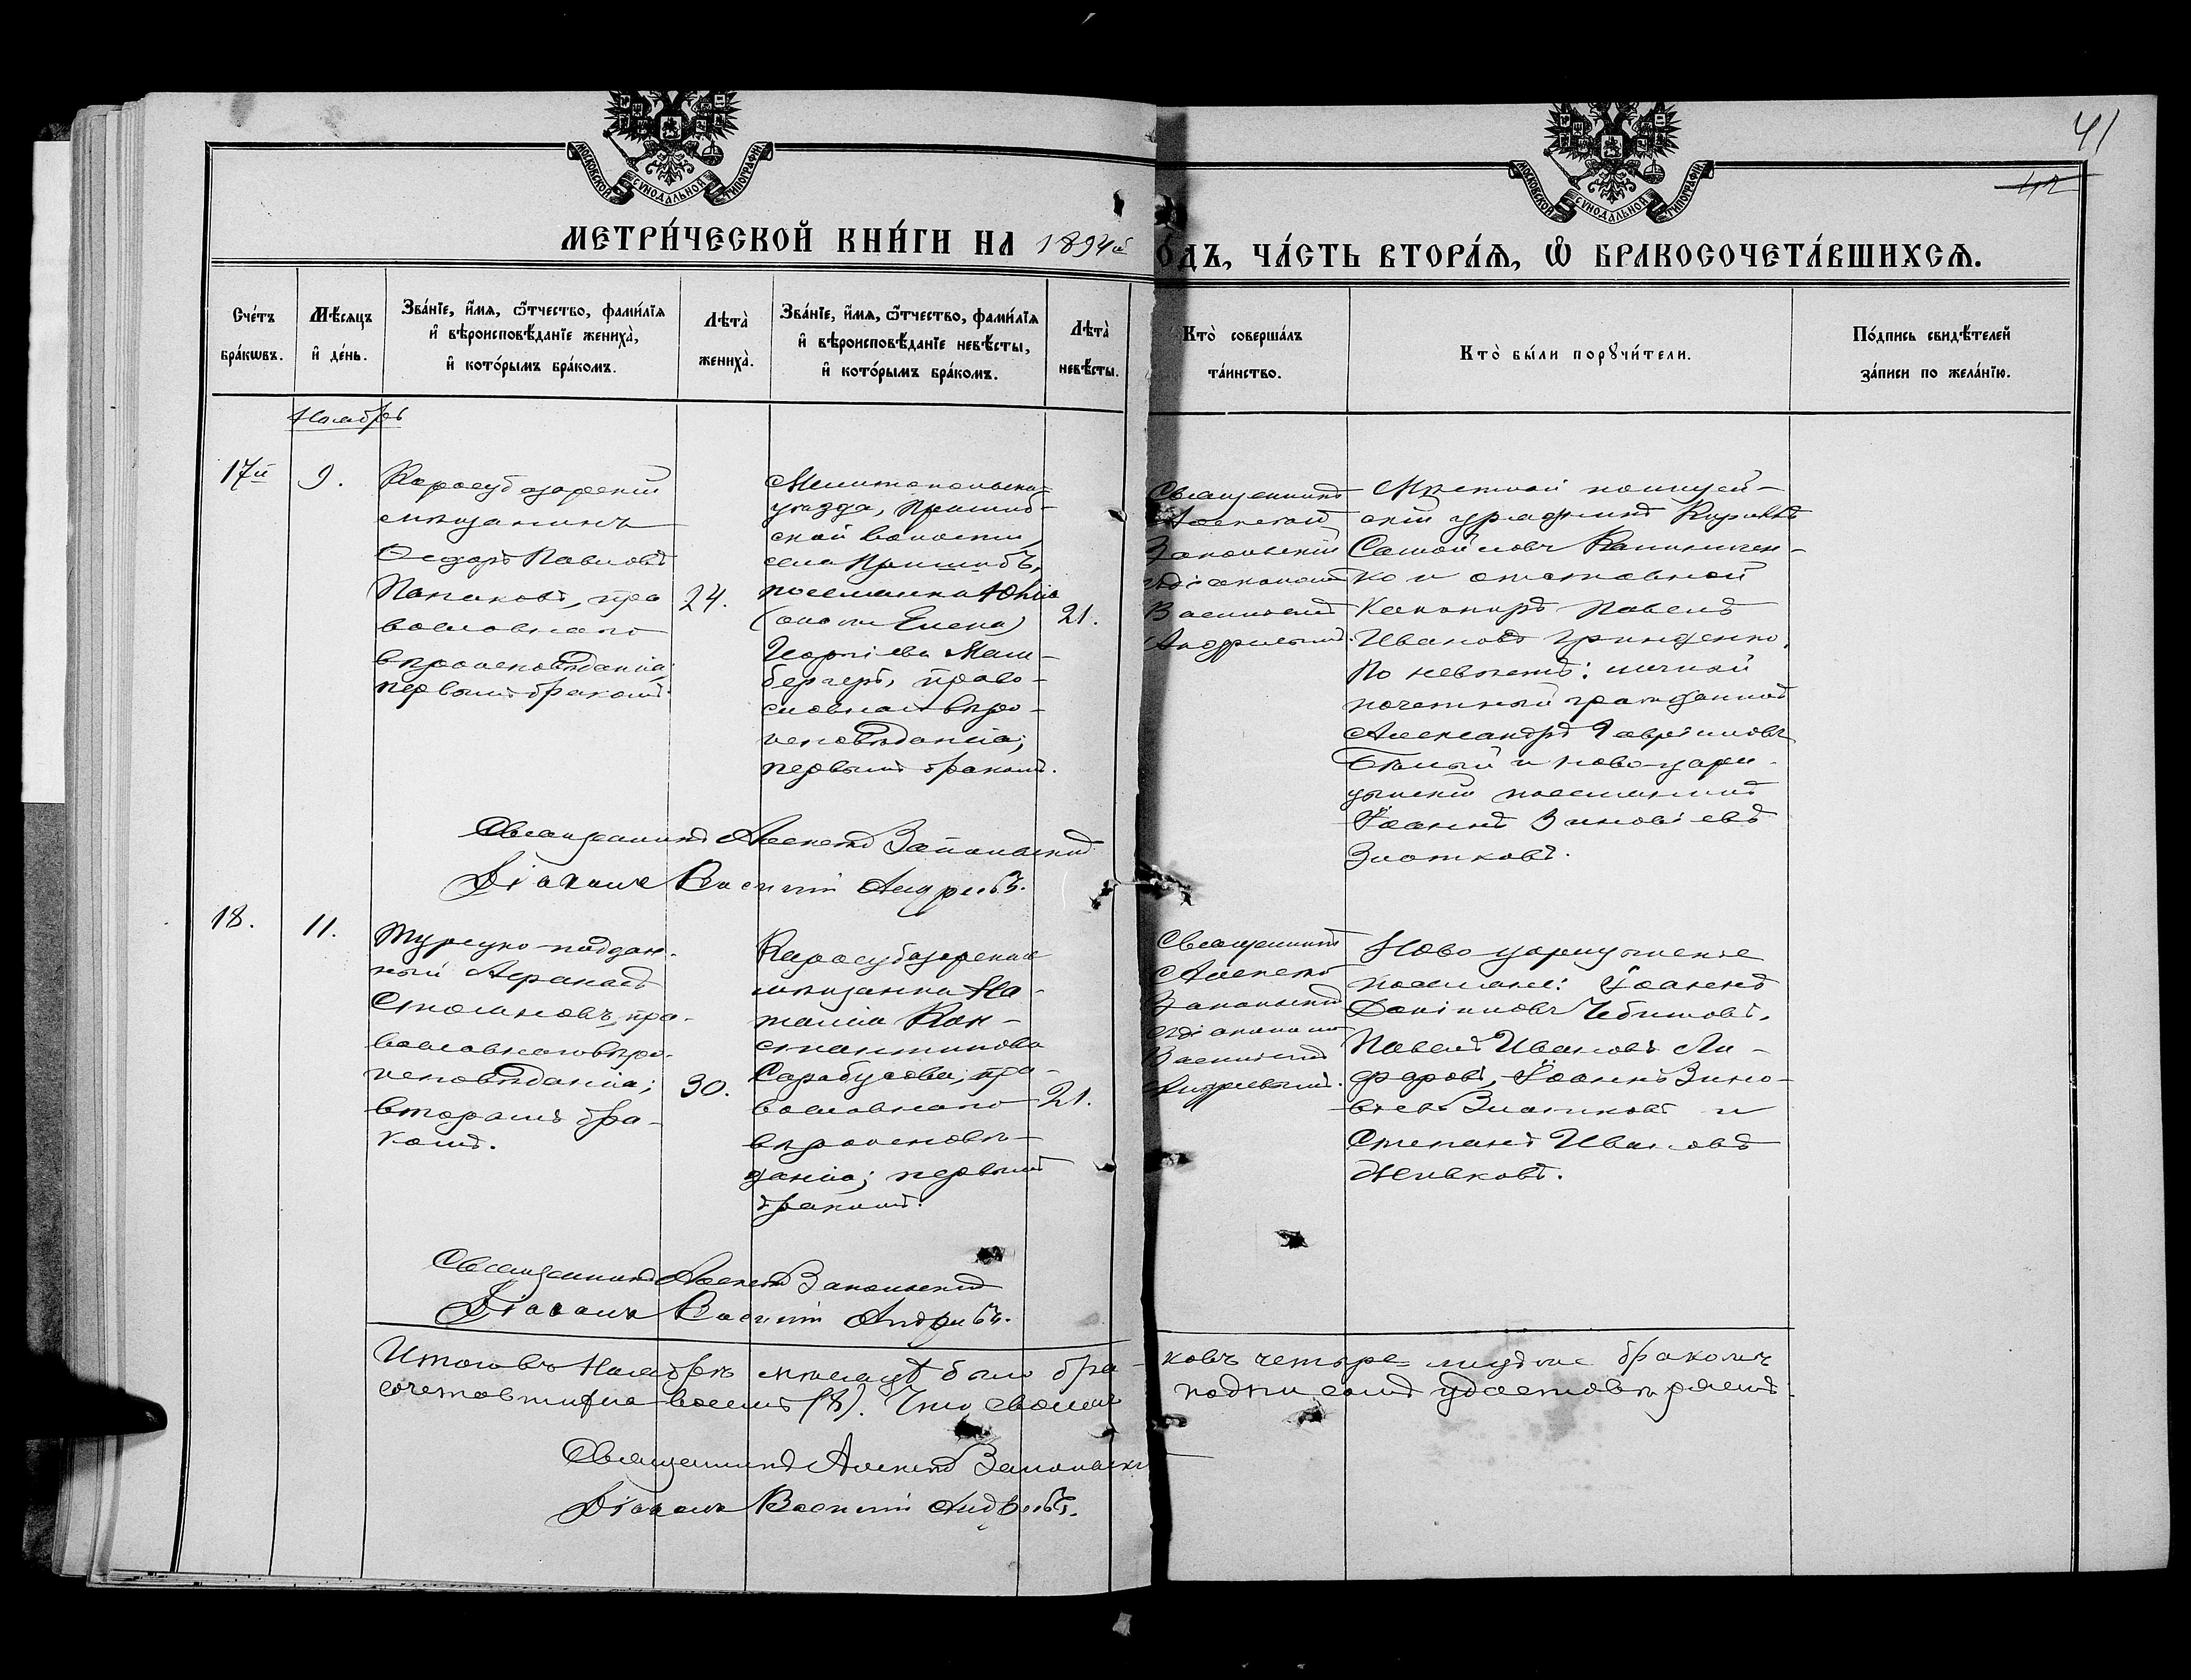 МОСКОВСКОЙ СѴНОДАЛЬНОЙ ТИПОГРАФІИ
МОСКОВСКОЙ СѴНОДАЛЬНОЙ ТИПОГРАФІИ
41
42
МЕТРИ́ЧЕСКОЙ КНИ́ГИ НА 1894й
О́ДЪ, ЧА́СТЬ ВТОРА́Ѧ, Ѡ҆ БРАКОСОЧЕТА́ВШИХСѦ.
Сче́тъ бра́кѡвъ.
Мѣ́сяцъ и҆ де́нь.
Зва́нїе, и҆́мѧ, ѻ҆́тчество, фами́лїѧ
и҆ вѣроисповѣ́данїе жениха̀,
и҆ кото́рымъ бра́комъ.
Лѣта̀ жениха̀.
Зва́нїе, и҆́мѧ, ѻ҆́тчество, фами́лїѧ
и҆ вѣроисповѣ́данїе невѣ́сты,
и҆ кото́рымъ бра́комъ.
Лѣта̀ невѣ́сты.
Кто̀ соверша́лъ
та́инство.
Кто̀ бы́ли порꙋчи́тели.
По́дпись свидѣ́телей
за́писи по жела́нїю.
Ноябрь
17й
9.
Карасубазарскій
мѣщанинъ
Ѳедоръ Павловъ
Папаковъ, пра
вославнаго
вѣроисповѣданія;
первымъ бракомъ.
24.
Мелитопольска-
уѣзда, Пришиб-
ской волости,
села Пришибъ,
поселянка Юлія
(она же Елена)
Георгіева Маи-
бергеръ, право-
славнаго вѣро-
исповѣданія;
первымъ бракомъ.
21.
Священникъ
Алексѣй
Запольскій
съ діакономъ
Василіемъ
Андріевымъ.
Мѣстный полицей-
скій урядникъ Кириллъ
Самойловъ Калиничен-
ко и отставной
Канониръ Павелъ
Ивановъ Гринденко.
По невѣстѣ: личный
почетный гражданинъ
Александръ Гавріиловъ
Бѣлый и ново-цари-
цынскій поселянинъ
Іоаннъ Зиновіевъ
Златковъ.
Священникъ Алексѣй Запольскій
Діаконъ Василій Андріевъ.
18.
11.
Турецко-поддан-
ный Аѳанасъ
Стояновъ, пра-
вославнаго вѣро-
исповѣданія;
вторымъ бра-
комъ.
30.
Карасубазарская
мѣщанка На-
талія Кон-
стантинова
Сарабусова; пра-
вославнаго
вѣроисповѣ-
данія; первымъ
бракомъ.
21.
Священникъ
Алексѣй
Запольскій
съ діакономъ
Василіемъ
Андріевымъ.
Ново царицынскіе
поселяне: Іоаннъ
Даніиловъ Чебишовъ,
Павелъ Ивановъ Ли-
фаровъ, Іоаннъ Зино-
віевъ Златковъ и
Степанъ Ивановъ
Живковъ.
Священникъ Алексѣй Запольскій
Діаконъ Василій Андріевъ.
Итого въ Ноябрѣ мѣсяцѣ было бра-
ковъ четыре
сочетавшихся восемь (8). Что своимъ
подписомъ удостовѣряемъ.
Священникъ Алексѣй Запольскій
Діаконъ Василій Андріевъ.